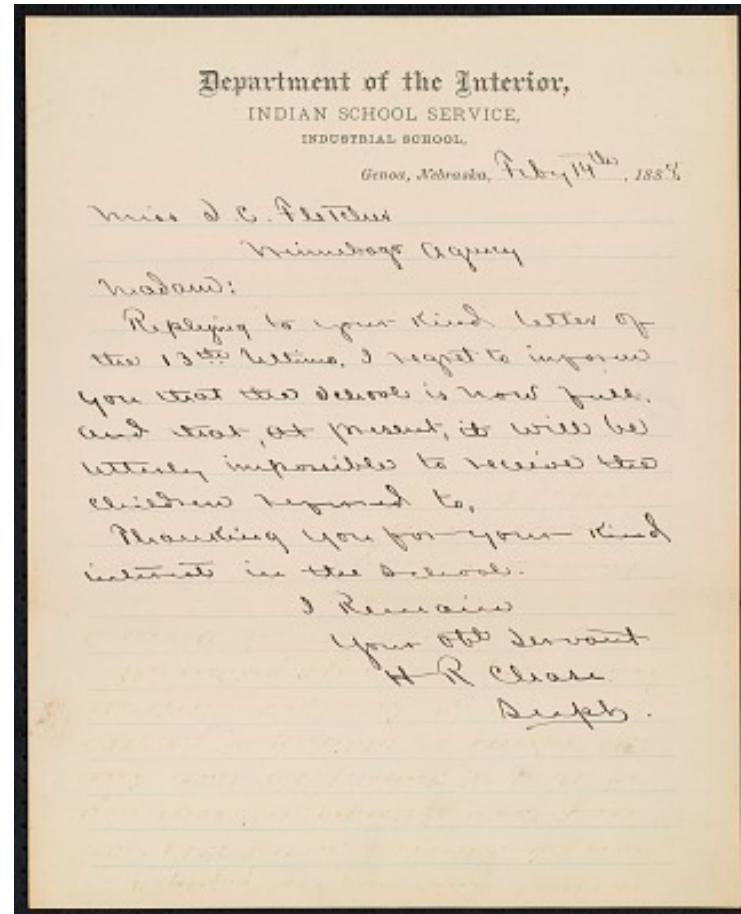 Department of the Interior,
INDIAN SCHOOL SERVICE,
INDUSTRIAL SCHOOL,
Genoa, Nebraska, Feby 14th, 1888
Miss I C. Fletcher
Winnebago Agency
Madam:
Replying to your Kind letter of
the 13th Ultimo, I regret to inform
you that the School is now full,
and that, at present, it will be
utterly impossible to receive the
children referred to.
Thanking you for your Kind
interest in the School.
I Remain
Your Obt Servant
H R Chase
Supt.